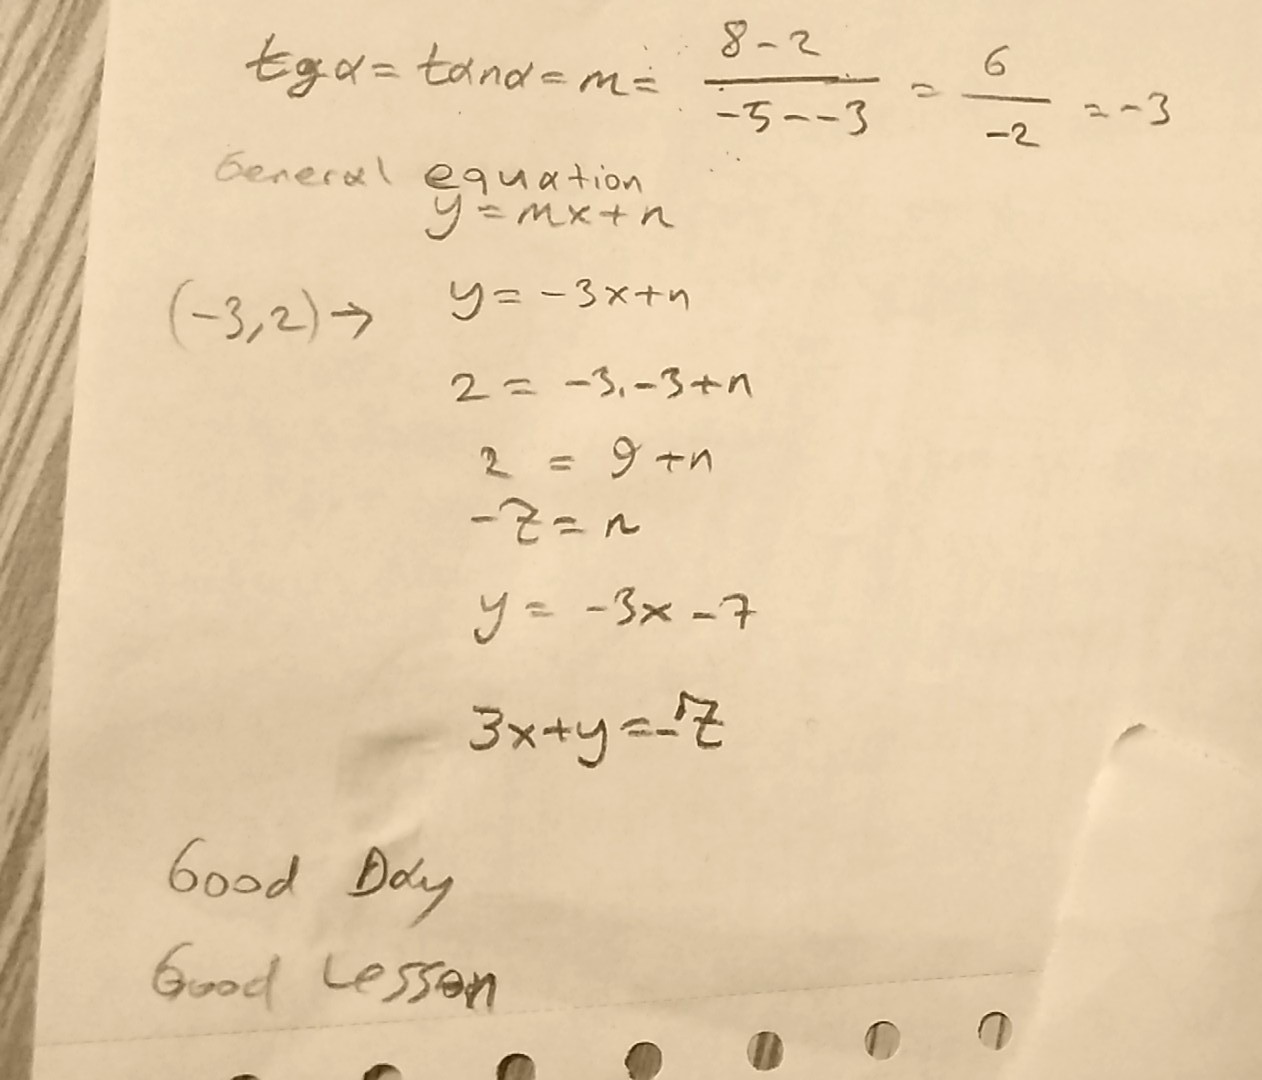 tgα = tanα = m = 8-2/-5--3 = 6/-2 = -3
General equation
y = mx+n
(-3,2) → y = -3x+n
2 = -3.-3+n
2 = 9+n
-7 = n
y = -3x-7
3x+y=-7
Good Day
Good Lesson